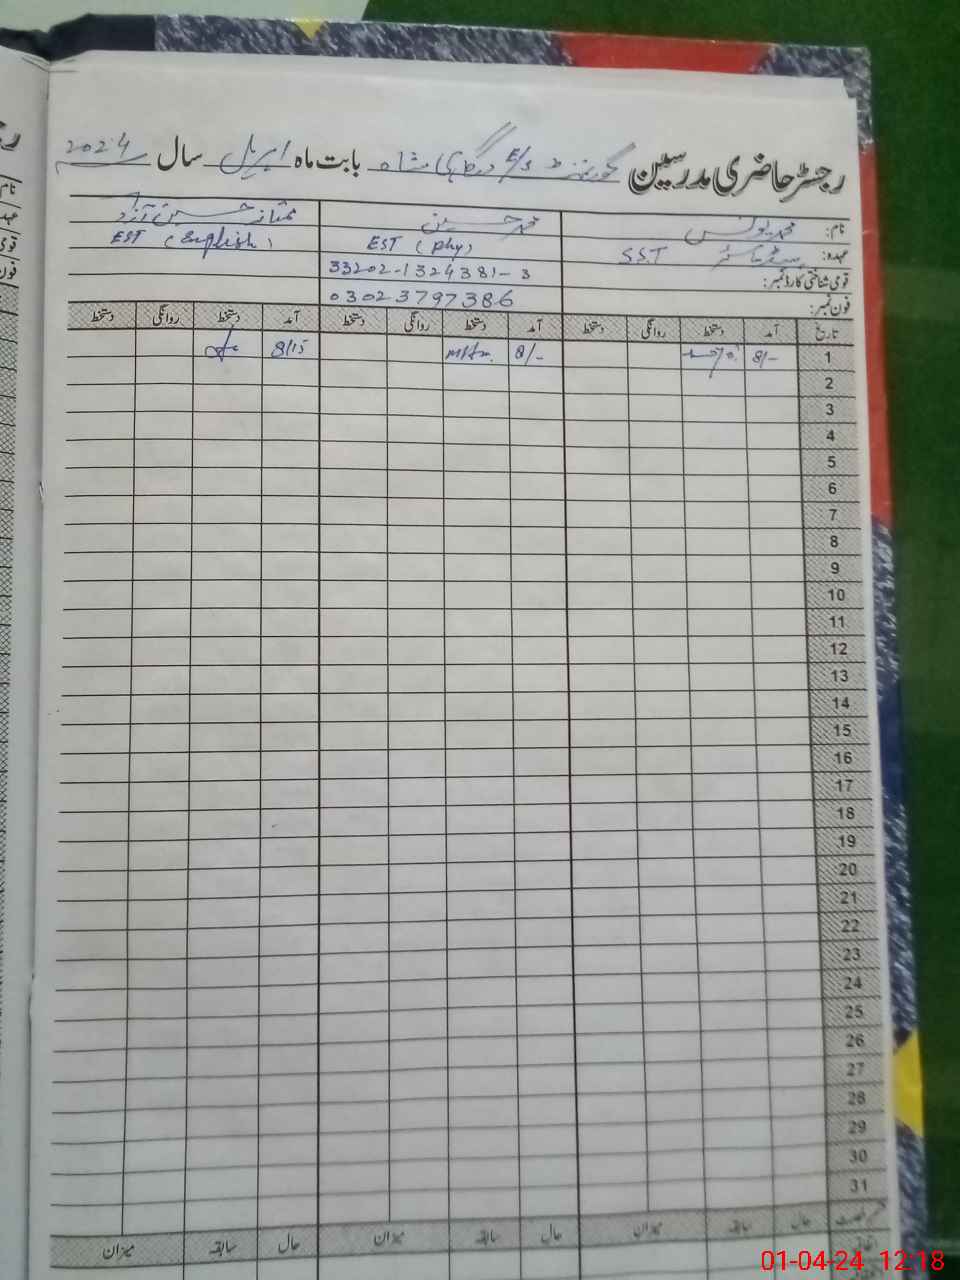 رجسٹر حاضری مدرسین گورنمنٹ E/S درگاہی شاہ بابت ماہ اپریل سال 2024
نام: محمد یونس محمد حسین ممتاز حسین آزاد
عہدہ: ہیڈ ماسٹر SST EST (Phy) EST (English)
قومی شناختی کارڈ نمبر: 33202-1324381-3
فون نمبر: 03023797386
تاریخ آمد دستخط روانگی دستخط آمد دستخط روانگی دستخط آمد دستخط روانگی دستخط
1 8/- 8/- 8/15
2
3
4
5
6
7
8
9
10
11
12
13
14
15
16
17
18
19
20
21
22
23
24
25
26
27
28
29
30
31
حال سابقہ میزان حال سابقہ میزان حال سابقہ میزان
01-04-24 12:18